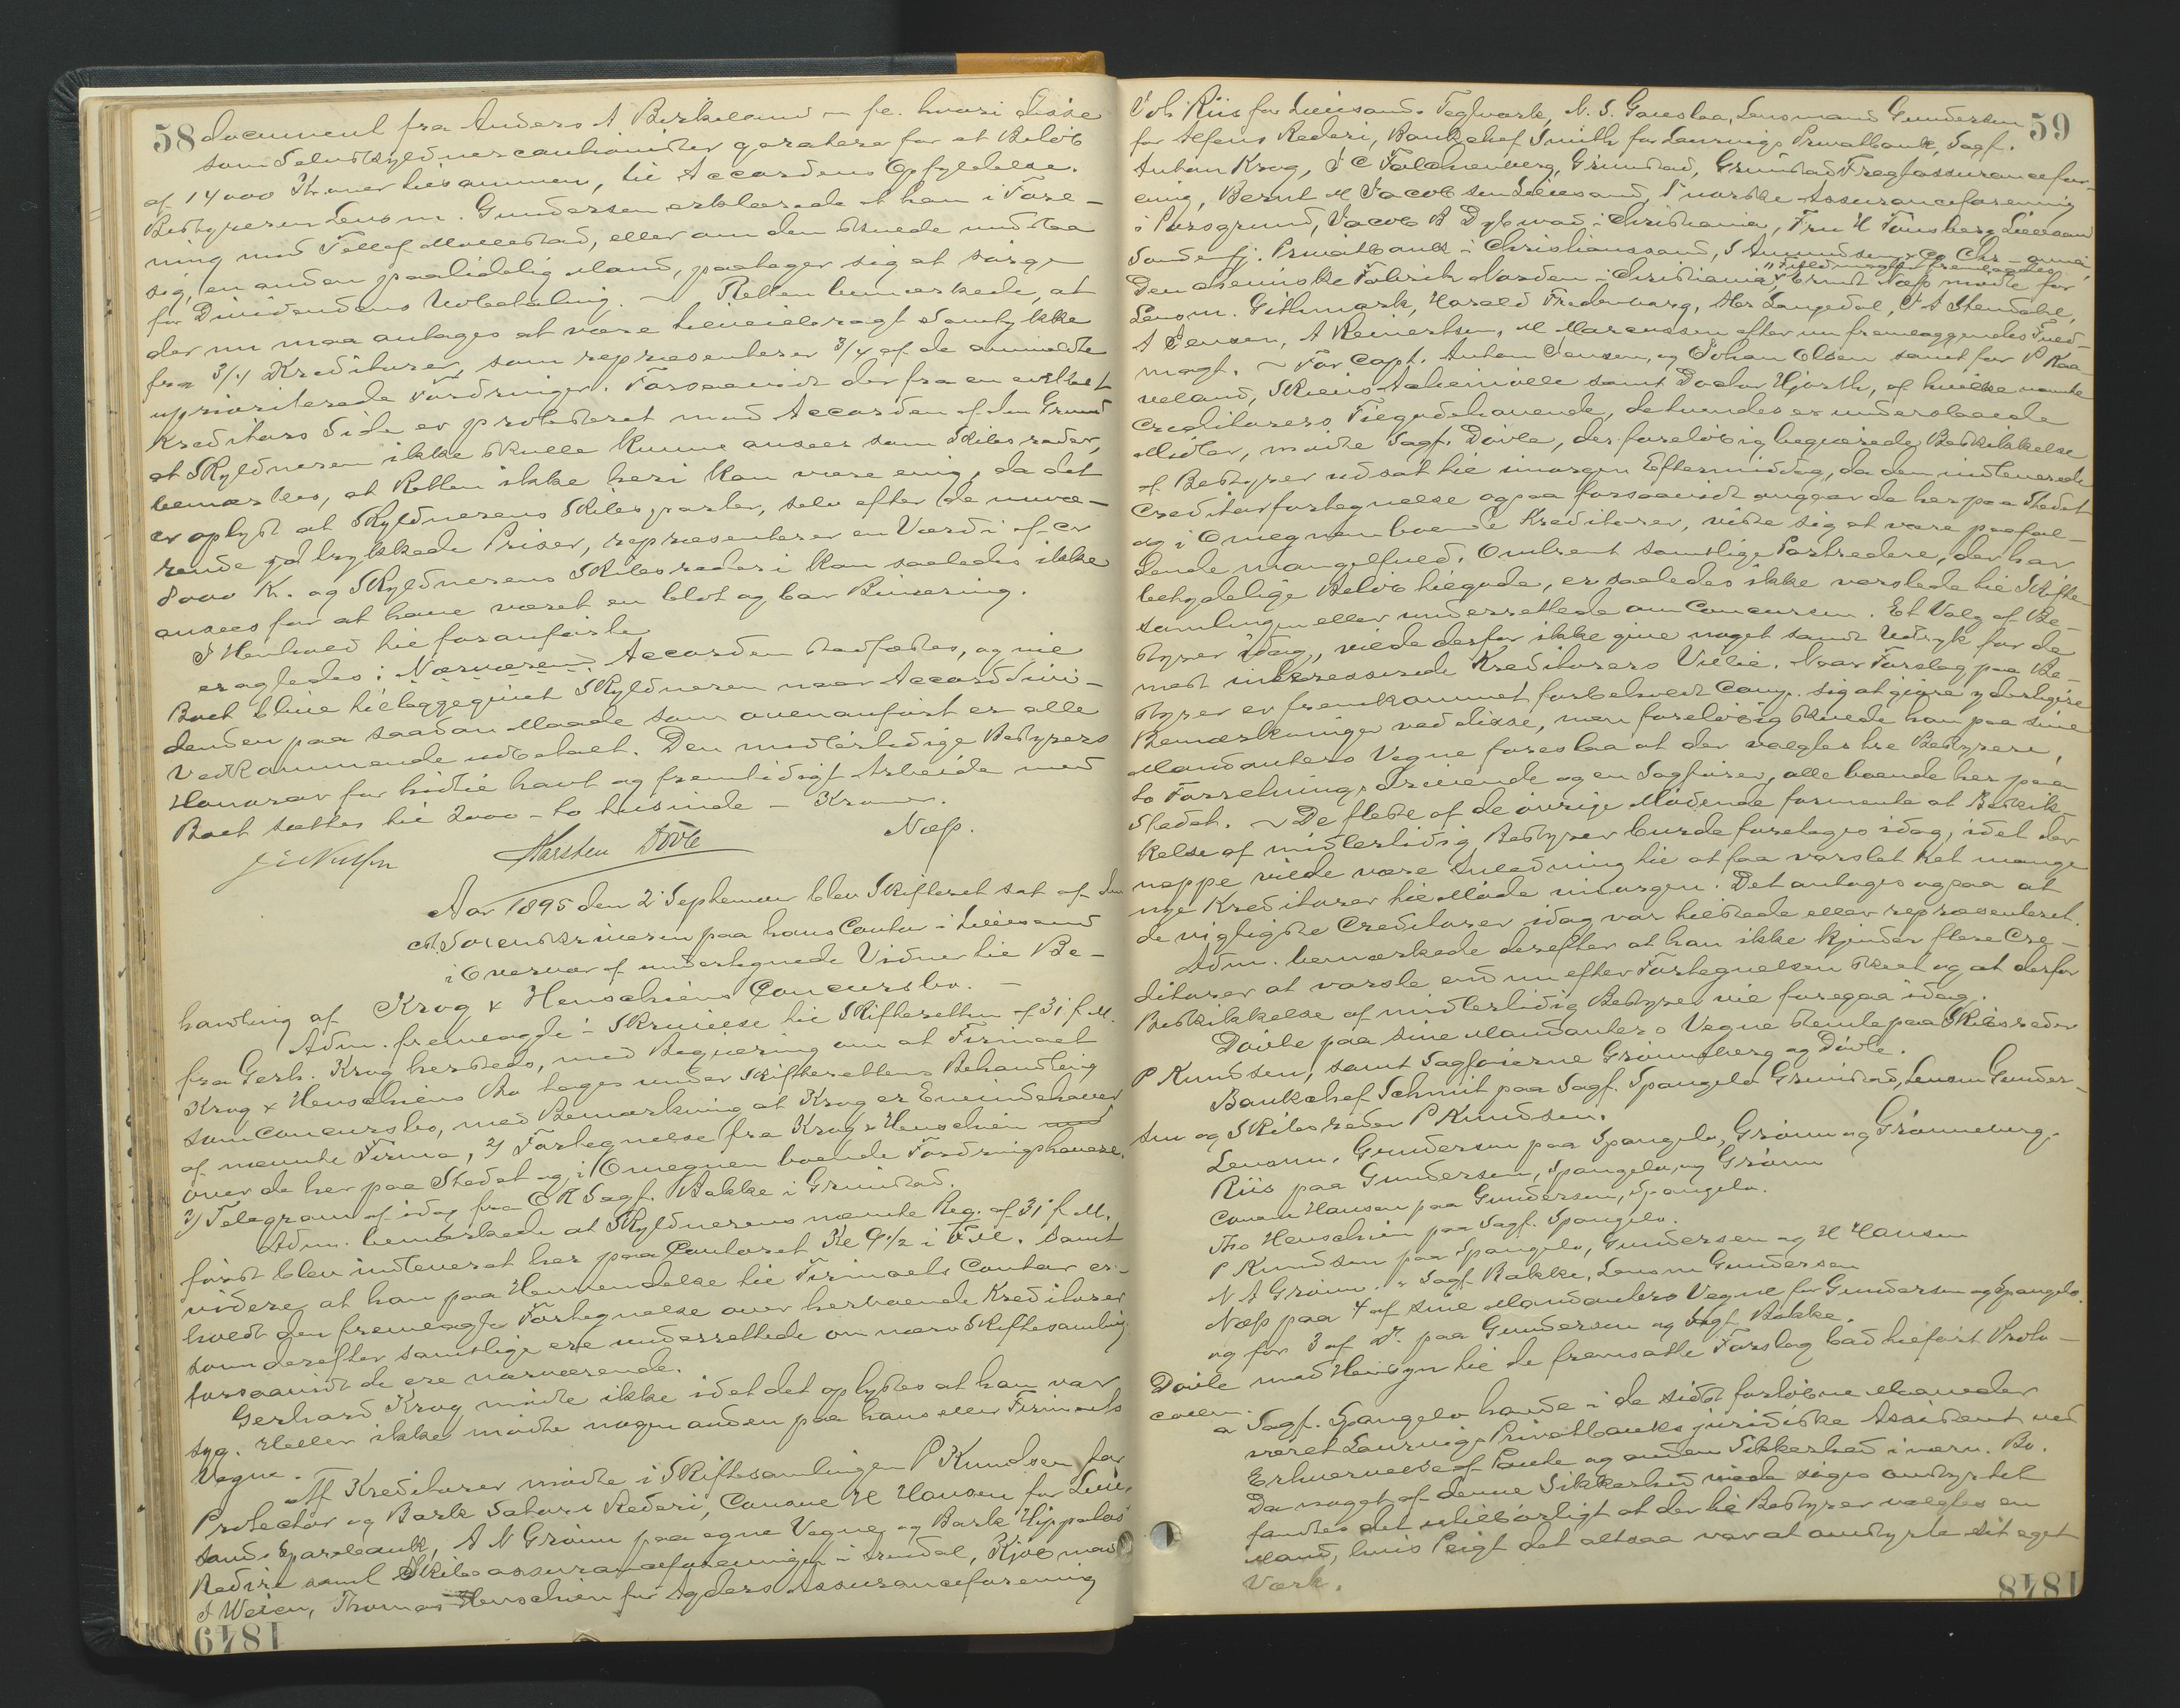 58
document fra Anders A Birkeland – fe. hvori disse
som Selvskyldnercautionister garaterer for et Beløb
af 14000 Kroner tilsammen, til Accordens Opfyldelse.
Bestyreren Lensm. Gundersen erklærede at han i Fore-
ning med Tellef Møllestad, eller om den skulde undslaa
sig, en anden paalidelig Mand, paatager sig at sørge
for Dividendens Udbetaling. – Retten bemærkede, at
der nu maa antages at være tilveiebragt Samtykke
fra 3/4 Kreditorer, som repræsenterer 3/4 af de anmeldte
uprioriterede Fordringer. Forsaavidt der fra en enkelt
Kreditors Side er protesteret mod Accorden af den Grund
at Skyldneren ikke skulle kunne ansees som Skibsreder,
bemærkes, at Retten ikke heri kan være enig, da det
er oplyst at Skyldnerens Skibsparter, selv efter de nuvæ-
rende nedtrykkede Priser, repræsenterer en Værdi af cr
8000 Kr. og Skyldnerens Skibsrederi kan saaledes ikke
ansees for at have været en blot og bar Binæring.
I Henhold til foranførte
eragtedes: Nærværend. Accorden stadfæstes, og vil
Boet blive tilbagegivet Skyldneren naar Accorddivi-
denden paa saadan Maade som ovenanført er alle
Vedkommende udbetalt. Den midlertidige Bestyrers
Honorar for hidtil havt og fremtidigt Arbeide med
Boet sættes til 2000 – to tusinde – Kroner.
Karsten Dovle Næss.
Aar 1895 den 2 September blev Skifteret sat af den
cst. Sorenskriveren paa hans Contor i Lillesand
i Overvær af undertegnede Vidner til Be-
handling af Krog & Henschiens Concursbo. –
Adm. fremlagde 1 Skrivelse til Skifteretten af 31 f. M.
fra Gerh. Krog hersteds, med Begjæring om at Firmaet
Krog & Henschiens Bo tages under Skifterettens Behandling
som Concursbo, med Bemærkning at Krog er Eneindehaver
af nævnte Firma, 2) Fortegnelse fra Krog & Henschien
over de her paa Stedet og i Omegnen boende Fordringshavere.
3) Telegram af idag fra O R Sagf. Bakke i Grimstad.
Adm. bemærkede at Skyldnerens nævnte Beg. af 31 f M.
først blev indleveret her paa Contoret Kl 9 1/2 i F.M. samt
videre, at han paa Henvendelse til Firmaets Contor er-
holdt den fremlagte Fortegnelse over herboende Kreditorer
som derefter samtlige ere underrettede om nærv Skiftesamling
forsaavidt de ere nærværende.
Gerhard Krog mødte ikke idet det oplystes at han var
syg. Heller ikke mødte nogen anden paa hans eller Firmaets
Vegne.
Af Kreditorer mødte i Skiftesamlingen P Knudsen for
Protector og Bark Saturs Rederi, Consul H Hansen for Lille-
sands Sparebank, A N Grønn paa egne Vegne og Bark Hippalos
Rederi samt Skibsassuranceforeningen i Arendal, Kjøbmand
J Weien, Thomas Henschien for Agders Assuranceforening
1849
59
Joh Riis for Lillesands Teglværk, N. S. Gauslaa, Lensmand Gundersen
for Alfens Rederi, Bankchef Smith for Laurvigs Privatbank, Sagf.
Anton Krog, J C Falchenberg, Grimstad, Grimstad Fragtassurancefor-
ening, Bernt M Jacobsen Lillesand, 1 norske Assuranceforening
i Porsgrund, Jacob B Dybwad i Christiania, Fru H Tønsberg Lillesand
Søndenfj. Privatbank i Christianssand, J Amundsen & Co Chr-ania,
Den chemiske Fabrik Norden i Christiania, Ernst Næss mødte for
Lensm. Githmark, Harald Fredenborg, Abr Langedal, J A Stendahl,
A Jensen, A Reinertsen, M Marcussen efter en fremlæggendes Fuld-
magt. – For Capt. Anton Jensen, og Johan Olsen samt for P Kaa-
veland, Skiens Actiemølle samt Doctor Hjorth, af hvilke nævnte
Creditorers Tilgodehavende, detvendes er underslaaede
Midler, mødte Sagf. Dovle, der foreløbig begjærede Beskikkelse
af Bestyrer udsat til imorgen Eftermiddag, da den indleverede
Creditorfortegnelse ogsaa forsaavidt angaar de her paa Stedet
og i Omegnen boende Kreditorer, viste sig at være paafal-
dende mangelfuld. Omtrent samtlige Partredere, der har
betydelige Beløb tilgode, er saaledes ikke varslede til Skifte
samlingen eller underrettede om Concursen. Et Valg af Be-
styrer idag, vilde derfor ikke give noget sandt Udtryk for de
mest interesserede Kreditorers Villie. Naar Forslag paa Be-
styrer er fremkommet forbeholdt Comp. sig at gjøre yderligere
Bemærkninger ved disse, men foreløbig skulde han paa sine
Mandanters Vegne foreslaa at der vælges tre Bestyrere,
to Forretningsdrivende og en Sagfører, alle boende her paa
Stedet. – De fleste af de øvrige Mødende formente at Beskik-
kelse af midlertidig Bestyrer burde foretages idag, idet der
neppe vilde være Anledning til at faa varslet ret mange
nye Kreditorer til Møde imorgen. Det antages ogsaa at
de vigtigste Creditorer idag var tilstede eller repræsenteret.
Adm. bemærkede derefter at han ikke kjender flere Cre-
ditorer at varsle end nu efter Fortegnelsen skeet og at derfor
Beskikkelse af midlertidig Bestyrer vil foregaa idag.
Dovle paa sine Mandanters Vegne stemte paa Skibsreder
P Knudsen, samt Sagførerne Grønneberg og Dovle.
Bankchef Schmit paa Sagf. Spangelo Grimstad, Lensm Gunder-
sen og Skibsreder P Knudsen.
Lensm. Gundersen paa Spangelo, Grønn og Grønneberg.
Riis paa Gundersen, Spangelo, og Grønn
Consul Hansen paa Gundersen, Spangelo.
Tho Henschien paa Sagf. Spangelo.
P Knudsen paa Spangelo, Gundersen og H Hansen
N A Grønn " Sagf. Bakke, Lensm Gundersen
Næss paa 4 af sine Mandanters Vegne for Gundersen og Spangelo.
og for 3 af D. paa Gundersen og Sagf Bakke.
Dovle med Hensyn til de fremsatte Forslag bad tilført Proto-
collen.
a Sagf. Spangelo havde i de sidst forløbne Maaneder
været Laurvigs Privatbanks juridiske Assistent ved
Erhvervelse af Pante og anden Sikkerhed i nærv. Bo.
Da noget af denne Sikkerhed vilde søges omstyrtet
fandtes det utilbørligt at der til Bestyrer vælges en
Mand, hvis Pligt det altsaa var at omstyrte sit eget
Værk.
1848